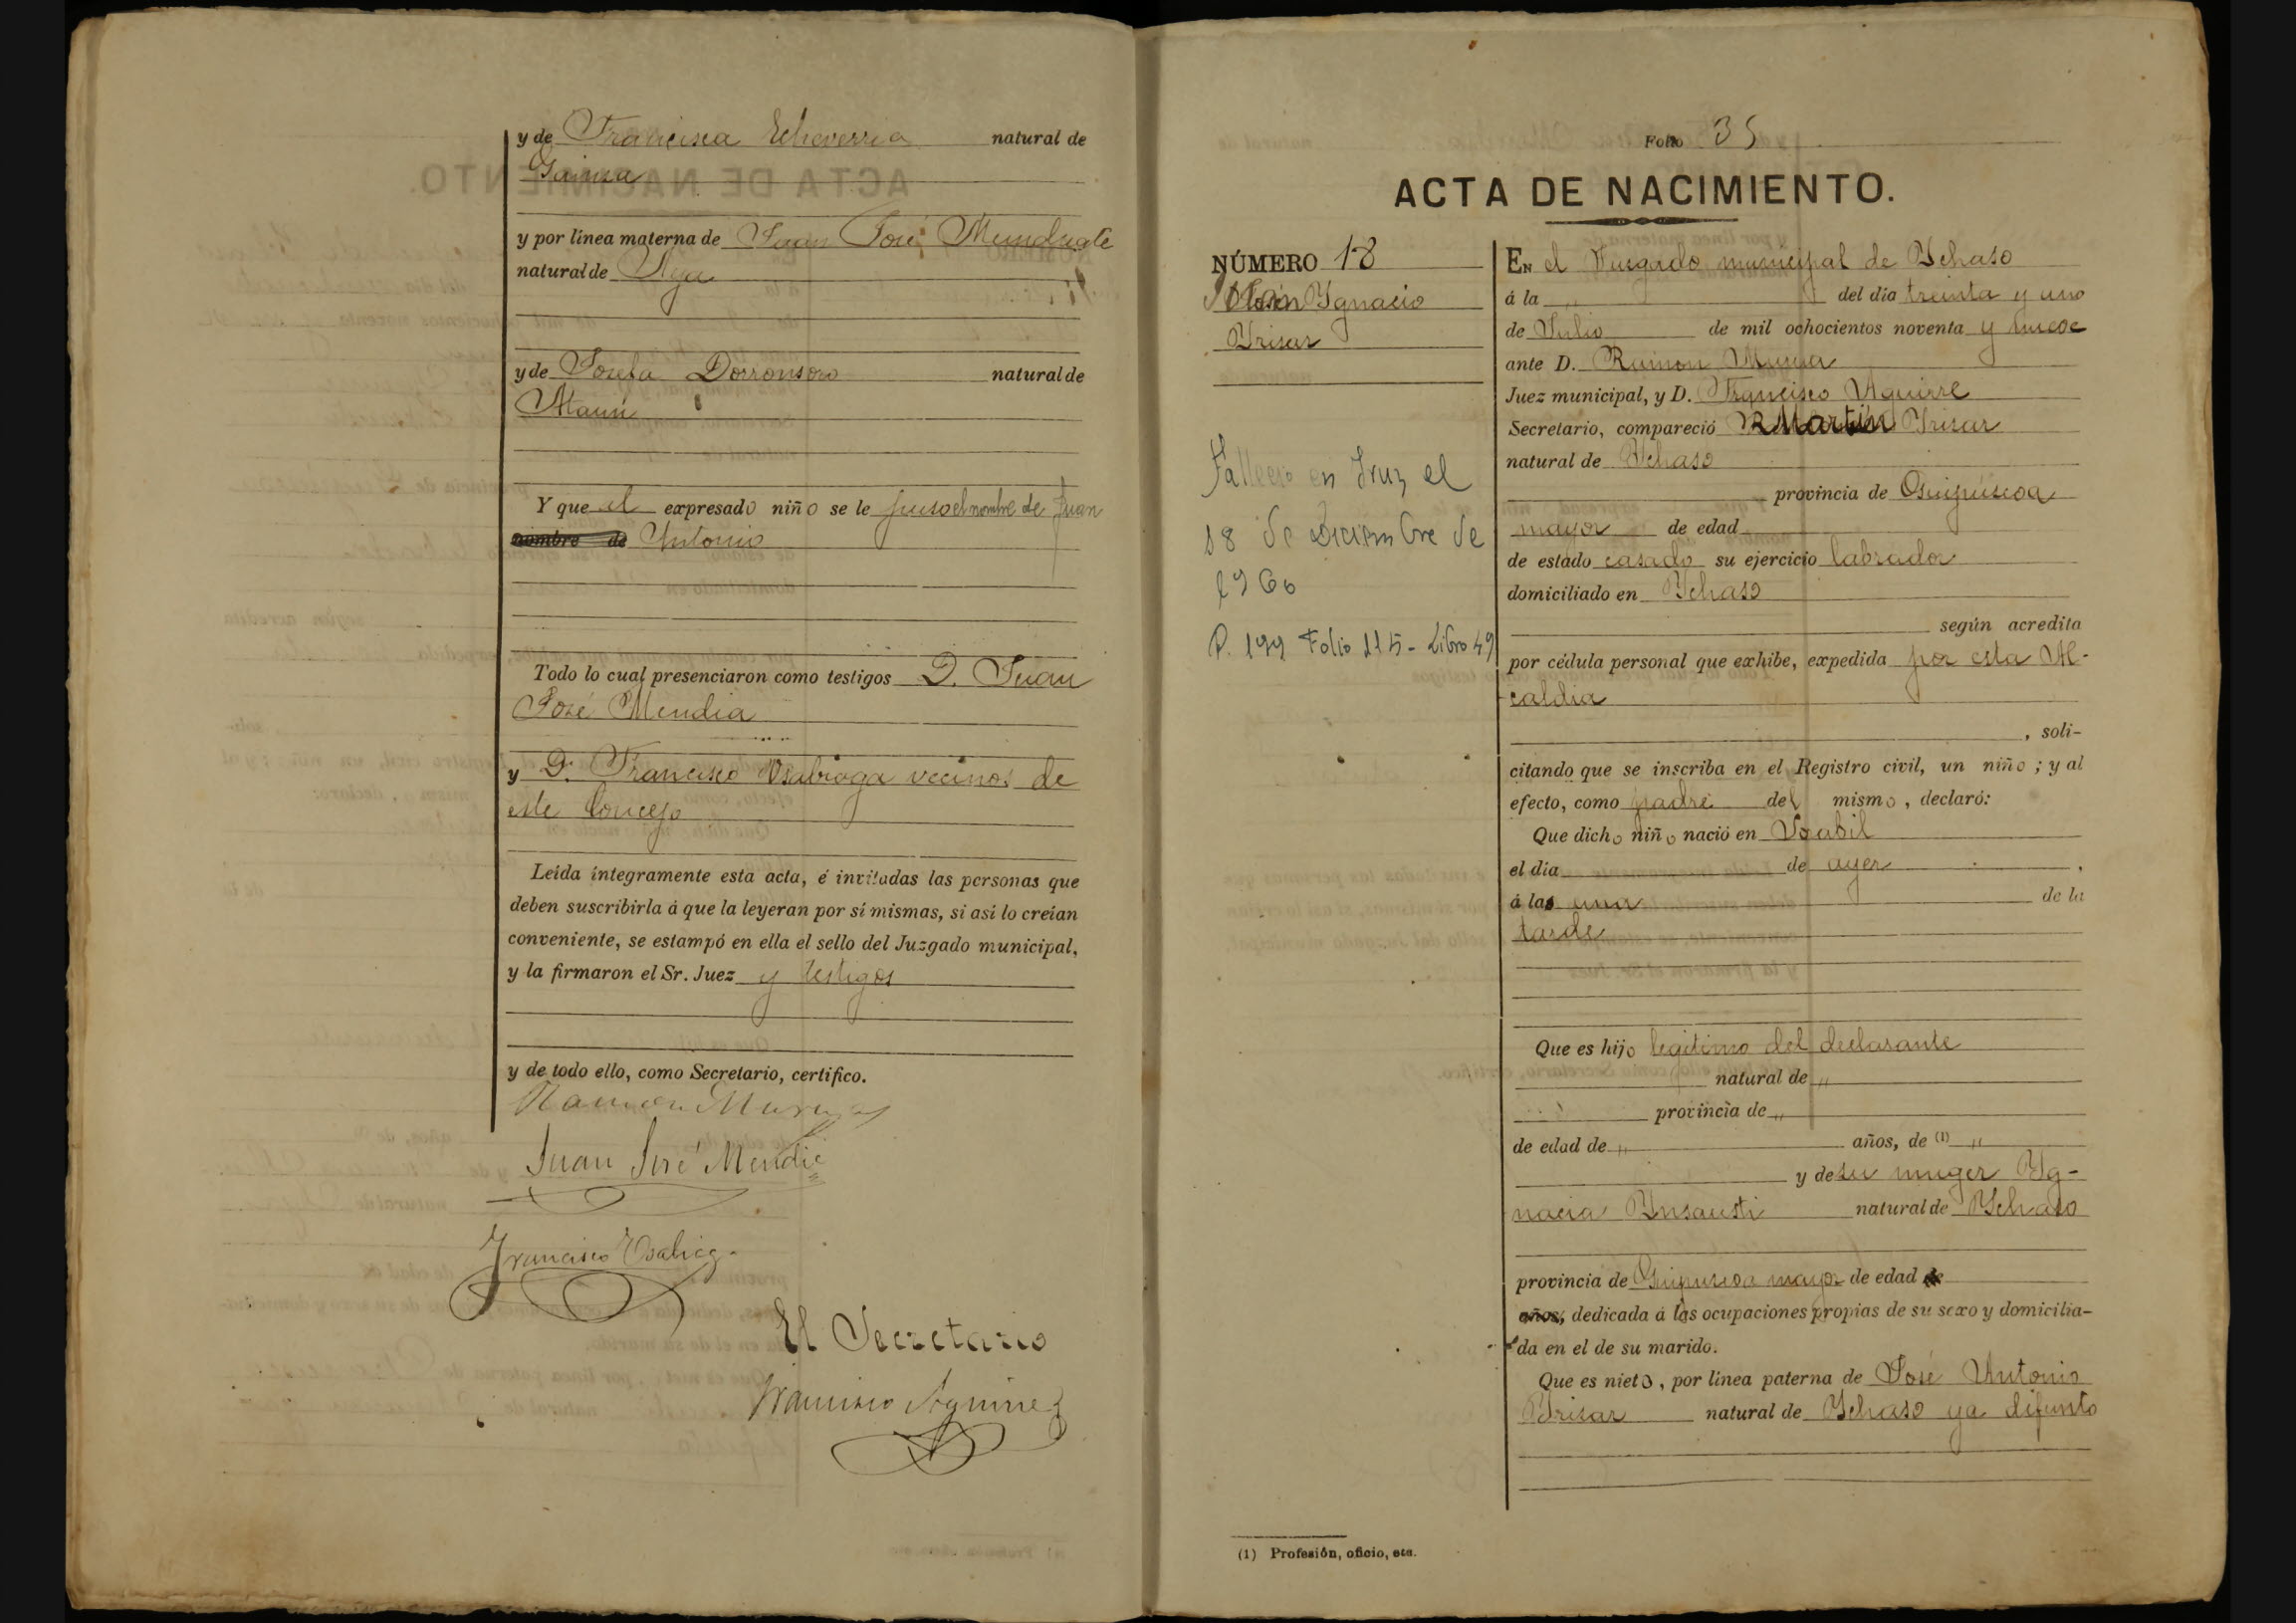 y de Francisca Echeverria natural de
Gainza
y por línea materna de Juan José Mendizate
natural de Aya
y de Josefa Dorronsoro natural de
Ataun
Y que el expresado niño se le puso el nombre de Juan
nombre de Antonio
Todo lo cual presenciaron como testigos D. Juan
José Mendia
y D. Francisco Osabiaga vecinos de
este Concejo
Leída íntegramente esta acta, é invitadas las personas que
deben suscribirla á que la leyeran por sí mismas, si así lo creían
conveniente, se estampó en ella el sello del Juzgado municipal,
y la firmaron el Sr. Juez y testigos
y de todo ello, como Secretario, certifico.
Ramon Murua
Juan José Mendia
Francisco Osabiag.
El Secretario
Francisco Aguirre
Folio 35
ACTA DE NACIMIENTO.
NÚMERO 18
Ygnacio
Yrizar
Fallecio en Irun el
18 de Diciembre de
1960
P. 199 Folio 115 - Libro 49
EN el Juzgado municipal de Ychaso
á la " del dia treinta y uno
de Julio de mil ochocientos noventa y nueve
ante D. Ramon Murua
Juez municipal, y D. Francisco Aguirre
Secretario, compareció Martin Yrizar
natural de Ychaso
provincia de Guipúzcoa
mayor de edad
de estado casado su ejercicio labrador
domiciliado en Ychaso
según acredita
por cédula personal que exhibe, expedida por esta Al-
caldia
, soli-
citando que se inscriba en el Registro civil, un niño ; y al
efecto, como padre del mismo , declaró:
Que dicho niño nació en Orabil
el dia de ayer
á las una de la
tarde
Que es hijo legitimo del declarante
natural de "
provincia de "
de edad de " años, de (1) "
y de su muger Yg-
nacia Ynsausti natural de Ychaso
provincia de Guipuzcoa mayor de edad de
años, dedicada á las ocupaciones propias de su sexo y domicilia-
da en el de su marido.
Que es nieto, por línea paterna de José Antonio
Yrizar natural de Ychaso ya difunto
(1) Profesión, oficio, etc.